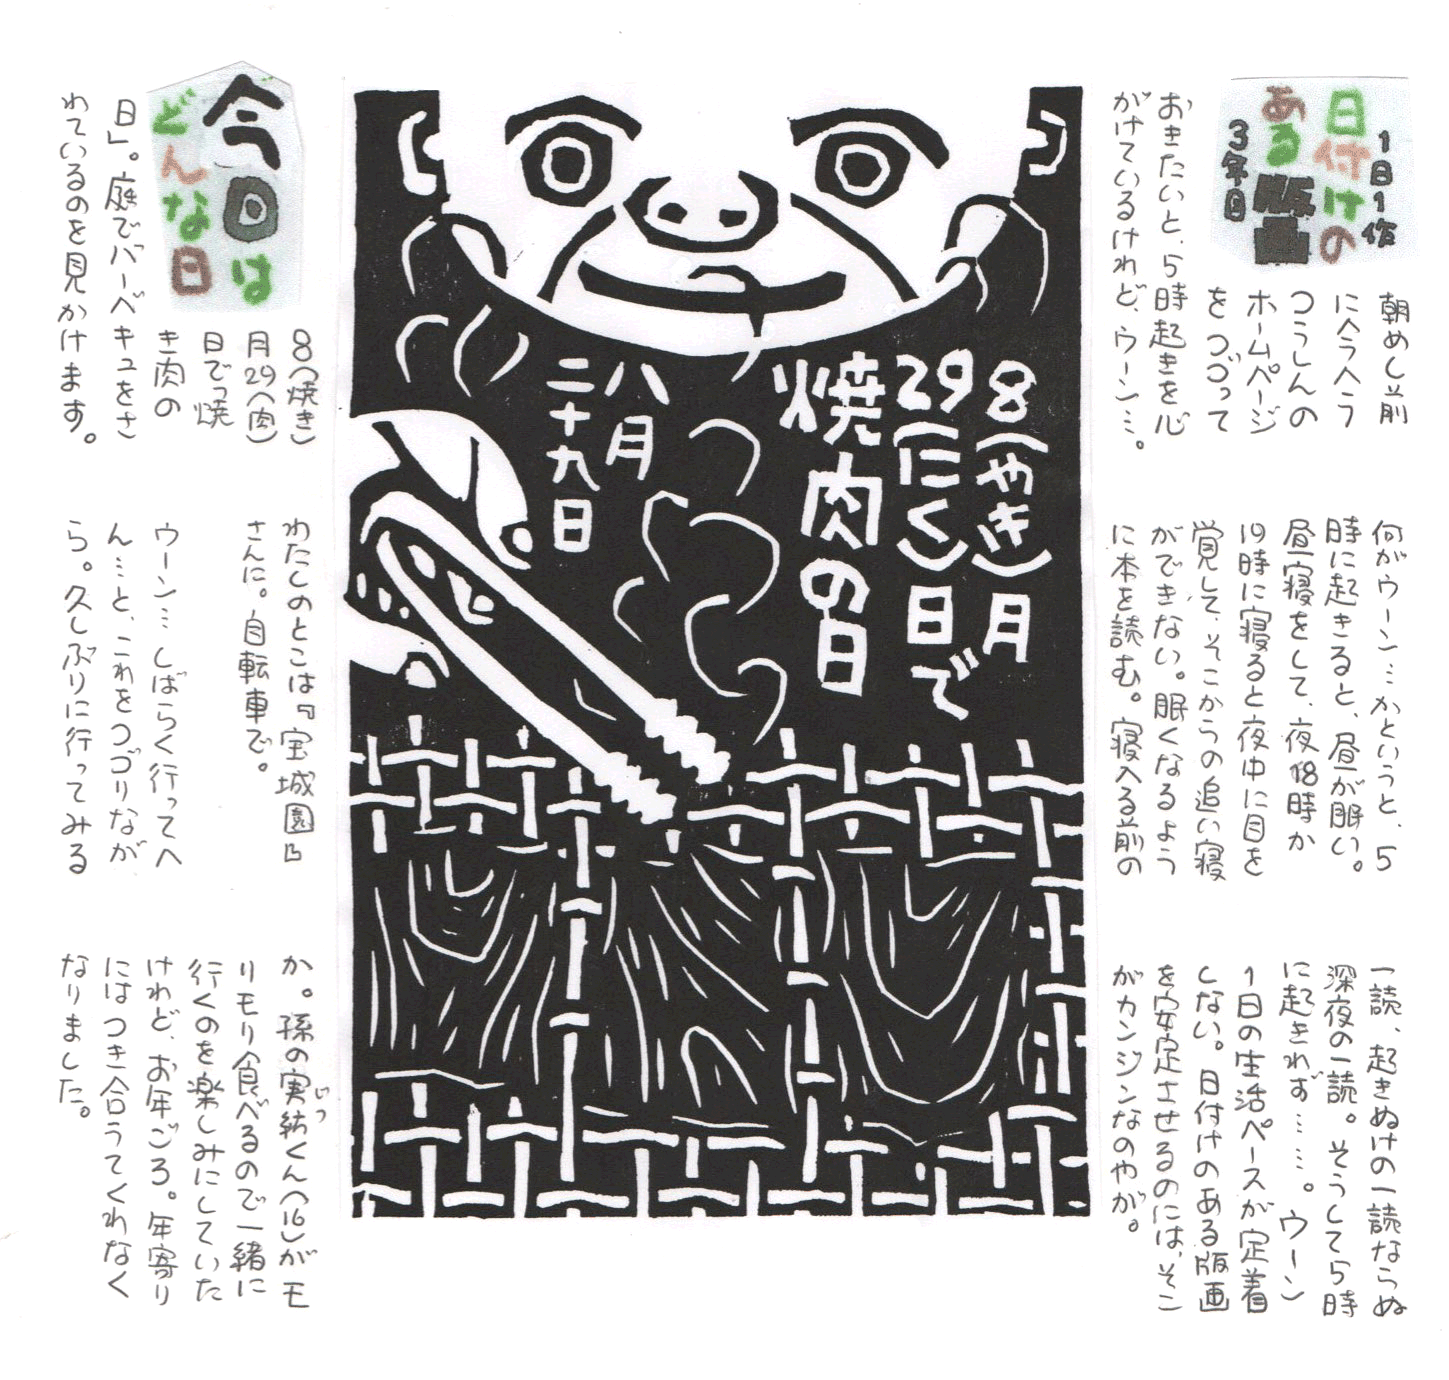 1日1作
日付けの
ある版画
3年目
朝めし前
にへうへう
つうしんの
ホームページ
をつづって
おきたいと、5時起きを心
がけているけれど、ウーン…。
何がウーン…かというと、5
時に起きると、昼が眠い。
昼寝をして、夜18時か
19時に寝ると夜中に目を
覚して、そこからの追い寝
ができない。眠くなるよう
に本を読む。寝入る前の
一読、起きぬけの一読ならぬ
深夜の一読。そうして5時
に起きれず……。ウーン
1日の生活ペースが定着
しない。日付けのある版画
を安定させるのには、そこ
がカンジンなのやが。
8(やき)月
29(にく)日で
焼肉の日
八月
二十九日
今日は
どんな日
8(焼き)
月29(肉)
日でっ焼
き肉の
日」。庭でバーベキュをさ
れているのを見かけます。
わたしのとこは『宝城園』
さんに。自転車で。
ウーン…しばらく行ってへ
ん…と、これをつづりなが
ら。久しぶりに行ってみる
か。孫の実紡くん(16)がモ
じつ
リモリ食べるので一緒に
行くのを楽しみにしていた
けれど、お年ごろ。年寄り
にはつき合うてくれなく
なりました。